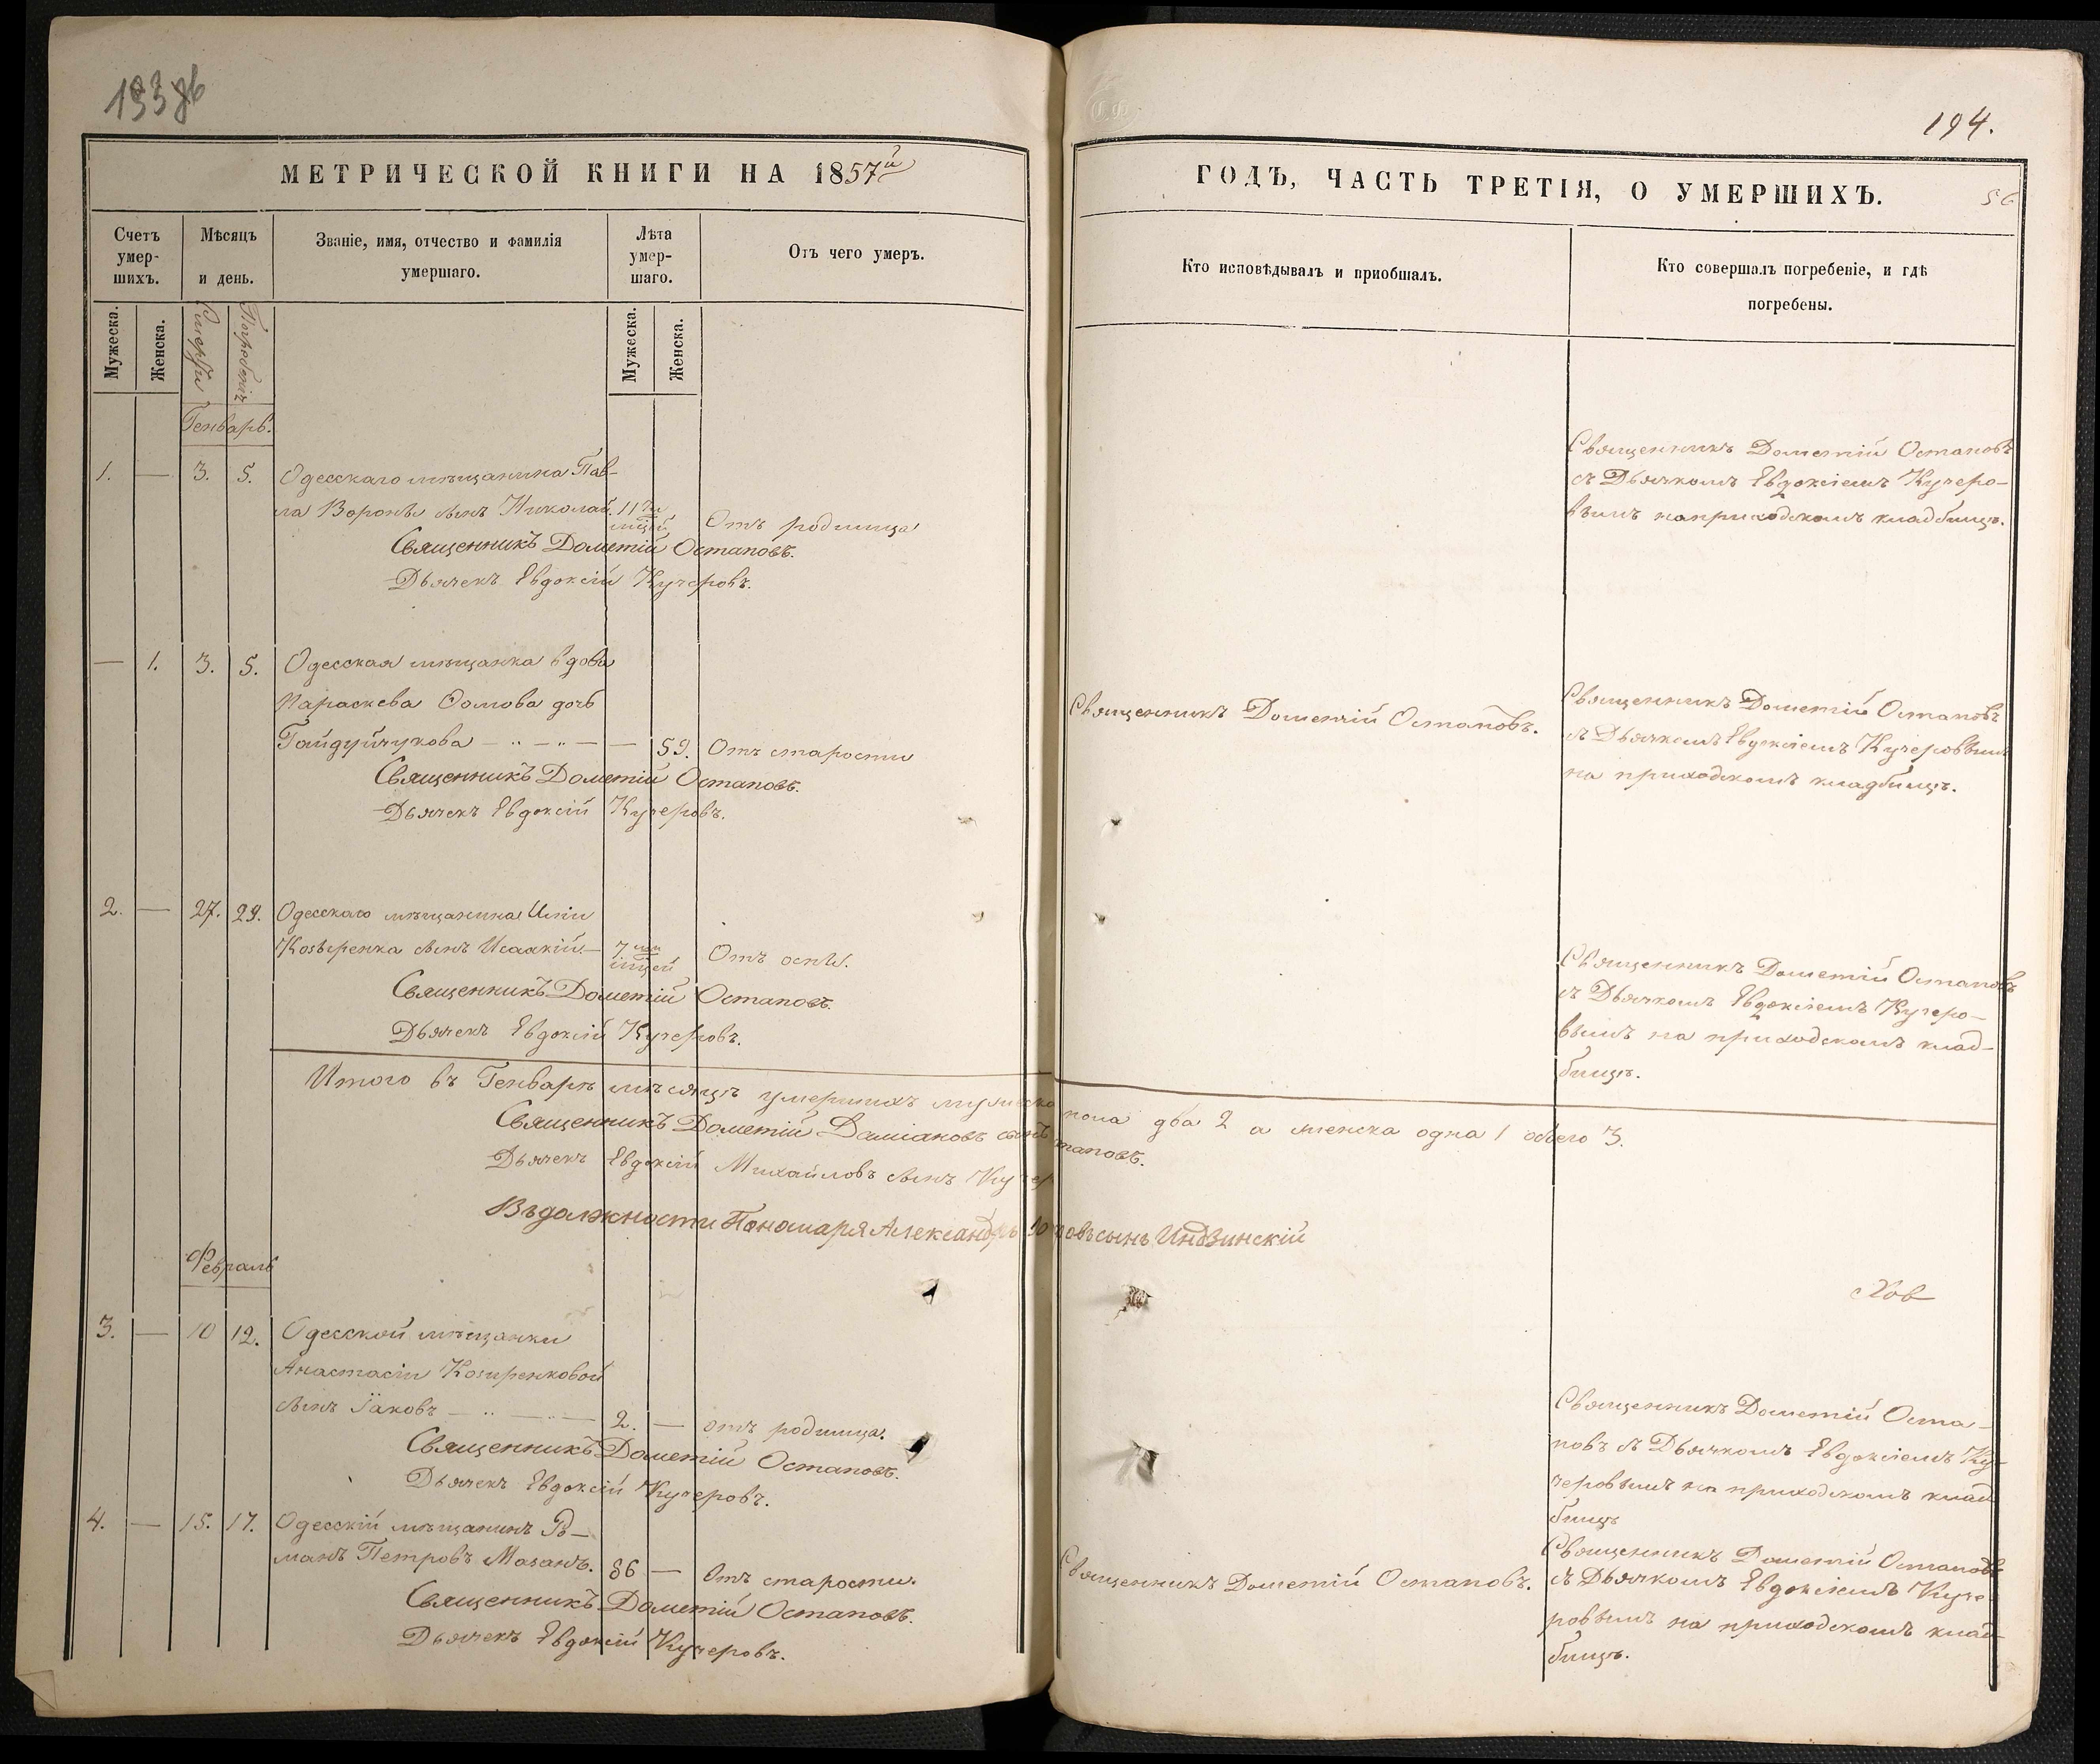 193 об
194.
МЕТРИЧЕСКОЙ КНИГИ НА 1857й
ГОДЪ, ЧАСТЬ ТРЕТІЯ, О УМЕРШИХЪ.
56
Счетъ умер-шихъ.
Мѣсяцъ и день.
Званіе, имя, отчество и фамилія умершаго.
Лѣта умер-шаго.
Отъ чего умеръ.
Кто исповѣдывалъ и пріобщалъ.
Кто совершалъ погребеніе, и гдѣ погребены.
Мужеска.
Женска.
Смерти
Погребенія
Мужеска.
Женска.
Генварь.
1. — 3. 5. Одесскаго мѣщанина Пав-
ла Вороны сынъ Николай. 11ти мѣсяц. Отъ родимца
Священникъ Дометій Остаповъ.
Дьячекъ Евдокій Кучеровъ.
Священникъ Дометій Остаповъ
съ Дьячкомъ Евдокіемъ Кучеро-
вымъ на приходскомъ кладбищѣ.
— 1. 3. 5. Одесская мѣщанка вдова
Параскева Сомова дочь
Гайдуйчукова — — 59. Отъ старости
Священникъ Дометій Остаповъ.
Дьячекъ Евдокій Кучеровъ.
Священникъ Дометій Остаповъ.
Священникъ Дометій Остаповъ
съ Дьячкомъ Евдокіемъ Кучеровымъ
на приходскомъ кладбищѣ.
2. — 27. 29. Одесскаго мѣщанина Иліи
Козыренка сынъ Исаакій. — 7ми Отъ оспы.
Священникъ Дометій Остаповъ.
Дьячекъ Евдокій Кучеровъ.
Священникъ Дометій Остаповъ
съ Дьячкомъ Евдокіемъ Кучеро-
вымъ на приходскомъ клад-
бищѣ.
Итого въ Генварѣ мѣсяцѣ умершихъ мужеска пола два 2 а женска одна 1 обоего 3.
Священникъ Дометій Даміановъ сынъ Остаповъ.
Дьячекъ Евдокій Михайловъ сынъ Кучер
Въ должности Пономаря Александръ сынъ Индзинскій
Февраль
3. — 10 12. Одесской мѣщанки
Анастасіи Козиренковой
сынъ Іаковъ — — 2. — отъ родимца.
Священникъ Дометій Остаповъ.
Дьячекъ Евдокій Кучеровъ.
Священникъ Дометій Оста-
повъ съ Дьячкомъ Евдокіемъ Ку-
черовымъ на приходскомъ клад
бищѣ
4. — 15. 17. Одесскій мѣщанинъ Ро-
манъ Петровъ Мазанъ. 86 — Отъ старости.
Священникъ Дометій Остаповъ.
Дьячекъ Евдокій Кучеровъ.
Священникъ Дометій Остаповъ.
Священникъ Дометій Остаповъ
съ Дьячкомъ Евдокіемъ Куче-
ровымъ на приходскомъ клад-
бищѣ.